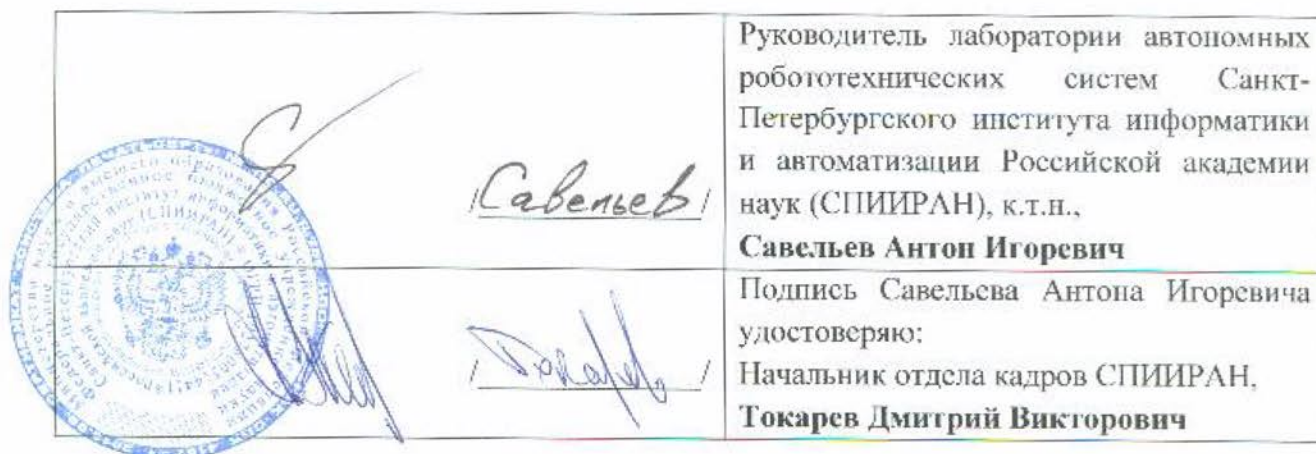 Руководитель лаборатории автономных
робототехнических систем Санкт-
Петербургского института информатики
и автоматизации Российской академии
наук (СПИИРАН), к.т.н.,
Савельев Антон Игоревич
/Савельев/
Подпись Савельева Антона Игоревича
удостоверяю:
Начальник отдела кадров СПИИРАН,
Токарев Дмитрий Викторович
/Токарев/